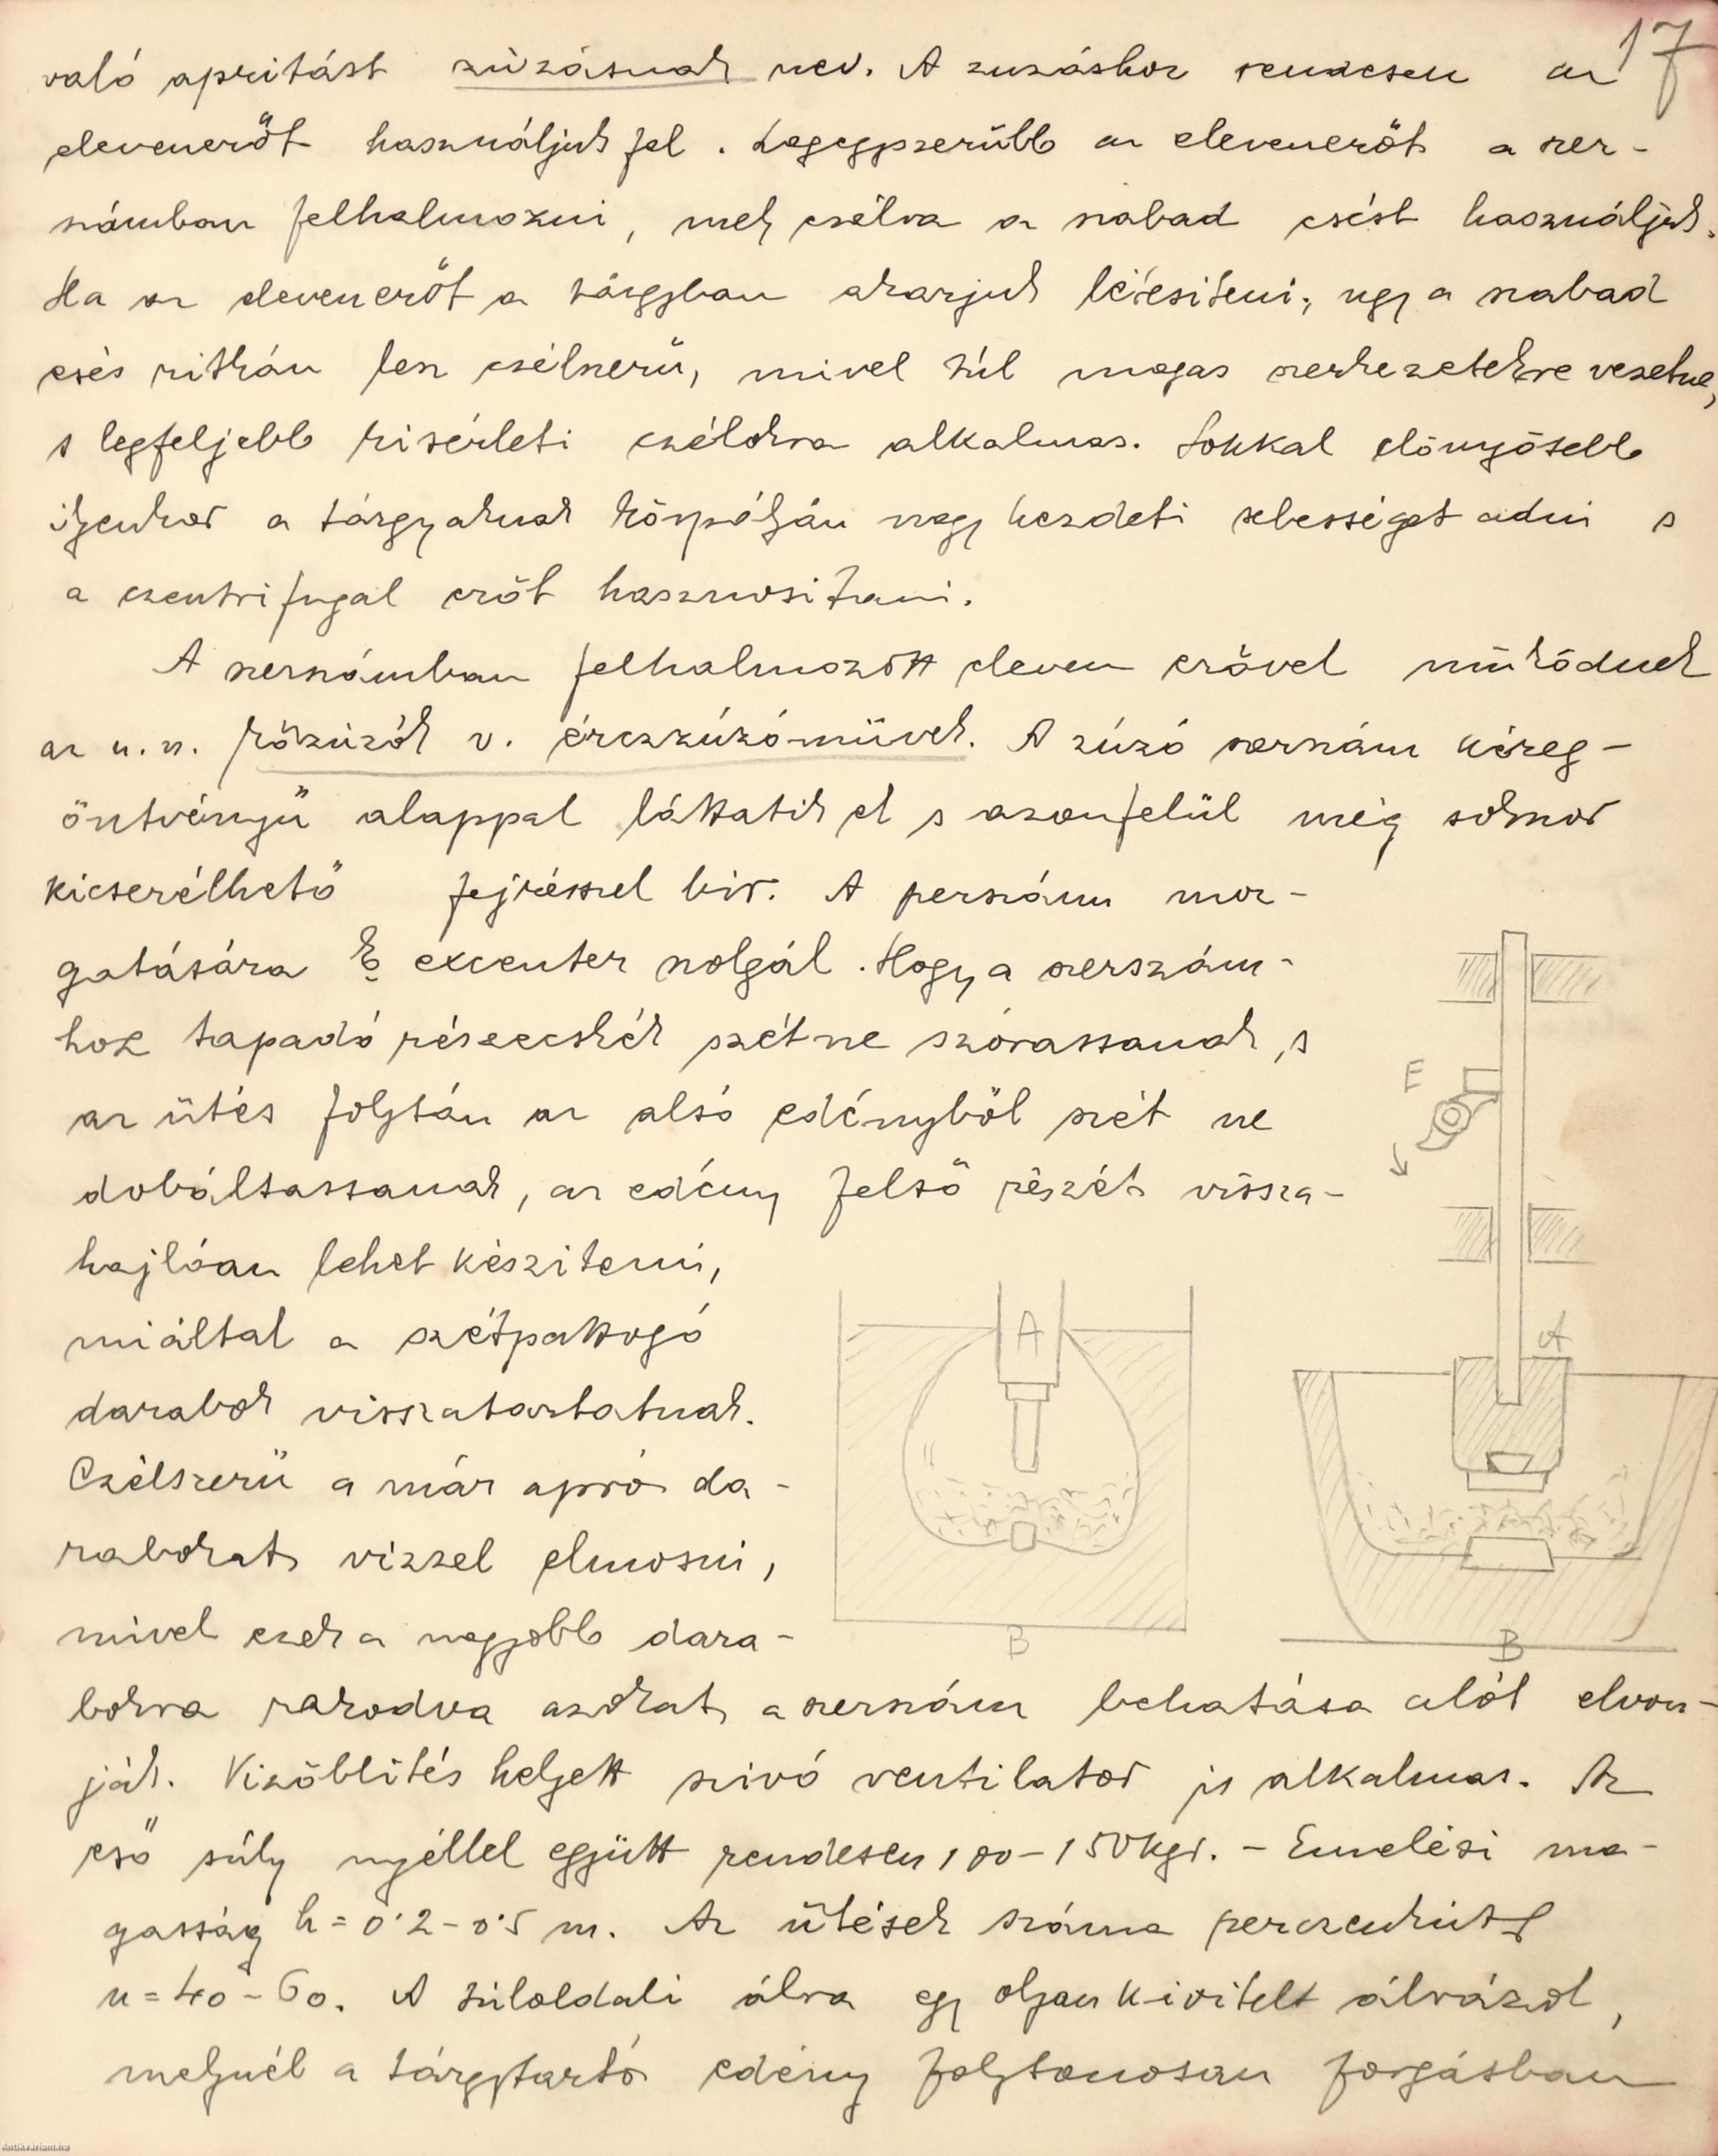 17
való apritást zúzásnak nev. A zuzáshoz rendesen az
eleven erőt használjuk fel. Legegyszerübb az elevenerőt a szer-
számban felhalmozni, mely czélra a szabad esést használjuk.
Ha az eleven erőt a tárgyban akarjuk létesiteni, ugy a szabad
esés ritkán lesz czélszerü, mivel túl magas szerkezetekre vezetne,
s legfeljebb kisérleti czélokra alkalmas. Sokkal előnyösebb
ilyenkor a tárgyaknak körpályán nagy kezdeti sebességet adni s
a czentrifugal erőt hasznositani.
A szerszámban felhalmozott eleven erővel müködnek
az u.n. kőzúzók v. érczzúzóművek. A zúzó szerszám kéreg-
öntvényü alappal láttatik el s azonfelül még sokszor
kicserélhető fejrésszel bir. A szerszám moz-
gatására E excenter szolgál. Hogy a szerszám-
hoz tapadó részecskék szét ne szórassanak, s
az ütés folytán az alsó edényből szét ne
dobáltassanak, az edény felső részét vissza-
hajlóan lehet késziteni,
miáltal a szétpattogó
darabok visszatartatnak.
Czélszerü a már apró da-
rabokat vizzel elmosni,
mivel ezek a nagyobb dara-
bokra rakodva azokat a szerszám behatása alól elvon-
ják. Vizöblités helyett szivó ventilator is alkalmas. Az
eső súly nyéllel együtt rendesen 100-150 kgr. - Emelési ma-
gasság h = 0·2-0·5 m. Az ütések száma perczenkint
n = 40-60. A túloldali ábra egy olyan kivitelt ábrázol,
melynél a tárgytartó edény folytonosan forgásban
E
A
A
B
B
Antikvarium.hu